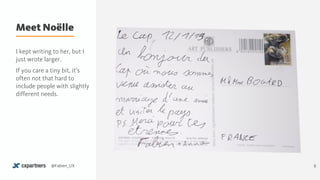 Meet Noëlle
I kept writing to her, but I
just wrote larger.
If you care a tiny bit, it's
often not that hard to
include people with slightly
different needs.
Le Cap, 12/1/19
ART PUBLISHERS
un bonjour du
Cap où nous sommes
venu assister au
mariage d'une
et visiter le pays
PS Merci pour les
étrennes.
Fabien + Anne
FRANCE
cxpartners
@Fabien_UX